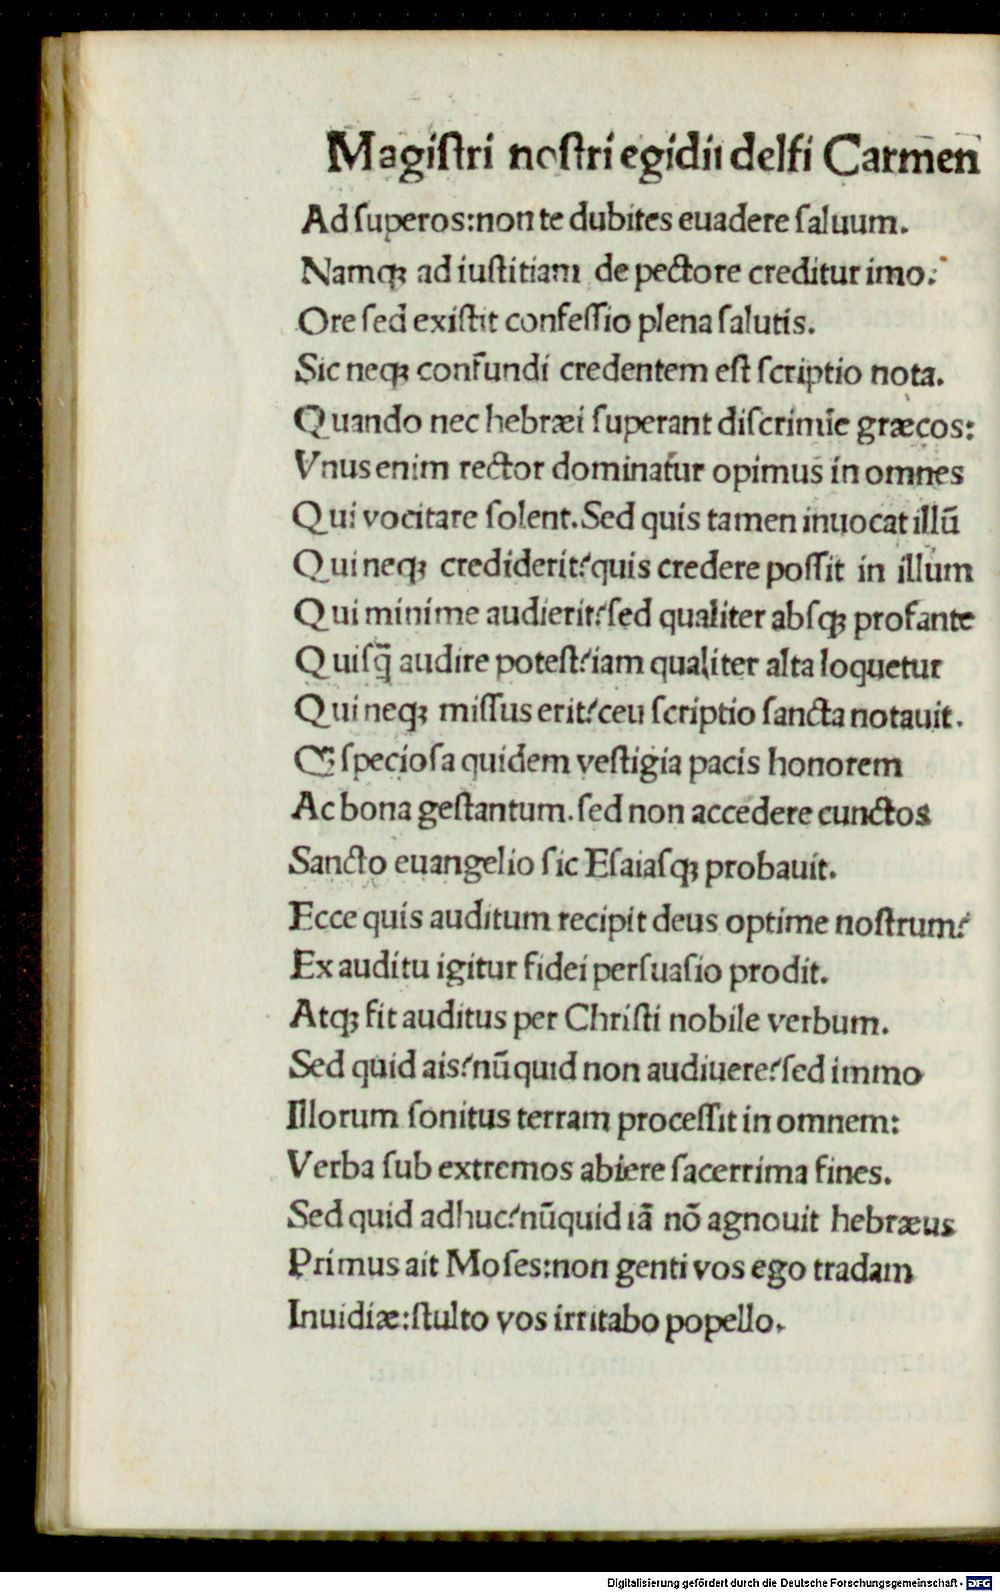 Magiſtri noſtri egidii delfi Carmen
Ad ſuperos:non te dubites euadere ſaluum.
Namqꝫ ad iuſtitiam de pectore creditur imo:
Ore ſed exiſtit confeſſio plena ſalutis.
Sic neqꝫ confundi credentem eſt ſcriptio nota.
Quando nec hebræi ſuperant diſcrimīe græcos:
Vnus enim rector dominatur opimus in omnes
Qui vocitare ſolent.Sed quis tamen inuocat illū
Qui neqꝫ crediderit?quis credere poſſit in illum
Qui minime audierit?ſed qualiter abſqꝫ profante
Quiſq̄ audire poteſt?iam qualiter alta loquetur
Qui neqꝫ miſſus erit?ceu ſcriptio ſancta notauit.
Qꝫ ſpecioſa quidem veſtigia pacis honorem
Ac bona geſtantum.ſed non accedere cunctos
Sancto euangelio ſic Eſaiaſqꝫ probauit.
Ecce quis auditum recipit deus optime noſtrum?
Ex auditu igitur fidei perſuaſio prodit.
Atqꝫ fit auditus per Chriſti nobile verbum.
Sed quid ais?nūquid non audiuere?ſed immo
Illorum ſonitus terram proceſſit in omnem:
Verba ſub extremos abiere ſacerrima fines.
Sed quid adhuc?nūquid iā nō agnouit hebræus
Primus ait Moſes:non genti vos ego tradam
Inuidiæ:ſtulto vos irritabo popello.
Digitalisierung gefördert durch die Deutsche Forschungsgemeinschaft - DFG